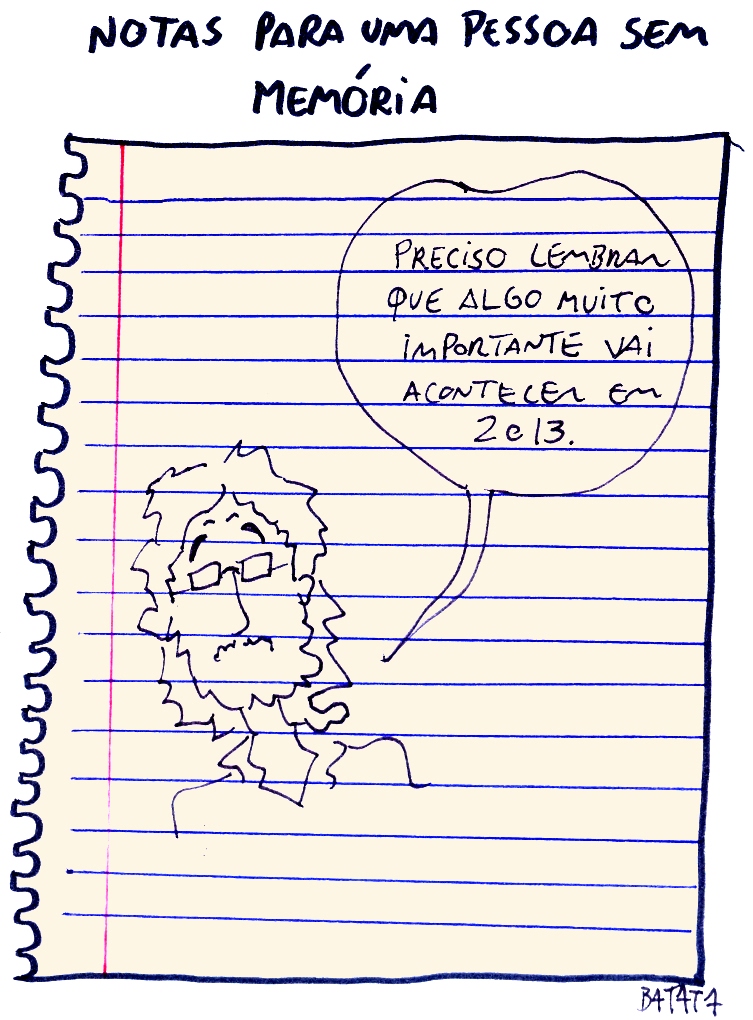 NOTAS PARA UMA PESSOA SEM
MEMÓRIA
PRECISO LEMBRAR
QUE ALGO MUITO
IMPORTANTE VAI
ACONTECER EM
2013.
BATATA